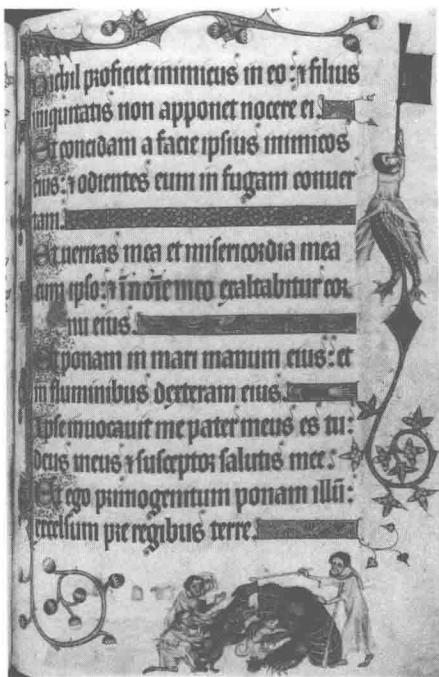 Nichil proficiet inimicus in eo: ⁊ filius
iniquitatis non apponet nocere ei.
Et concidam a facie ipsius inimicos
eius: ⁊ odientes eum in fugam conuer
tam.
Et ueritas mea et misericordia mea
cum ipso: ⁊ ī noīe meo exaltabitur cor
nu eius.
Et ponam in mari manum eius: et
in fluminibus dexteram eius.
Ipse inuocauit me pater meus es tu:
deus meus ⁊ susceptor salutis mee.
Et ego primogenitum ponam illū:
excelsum pre regibus terre.